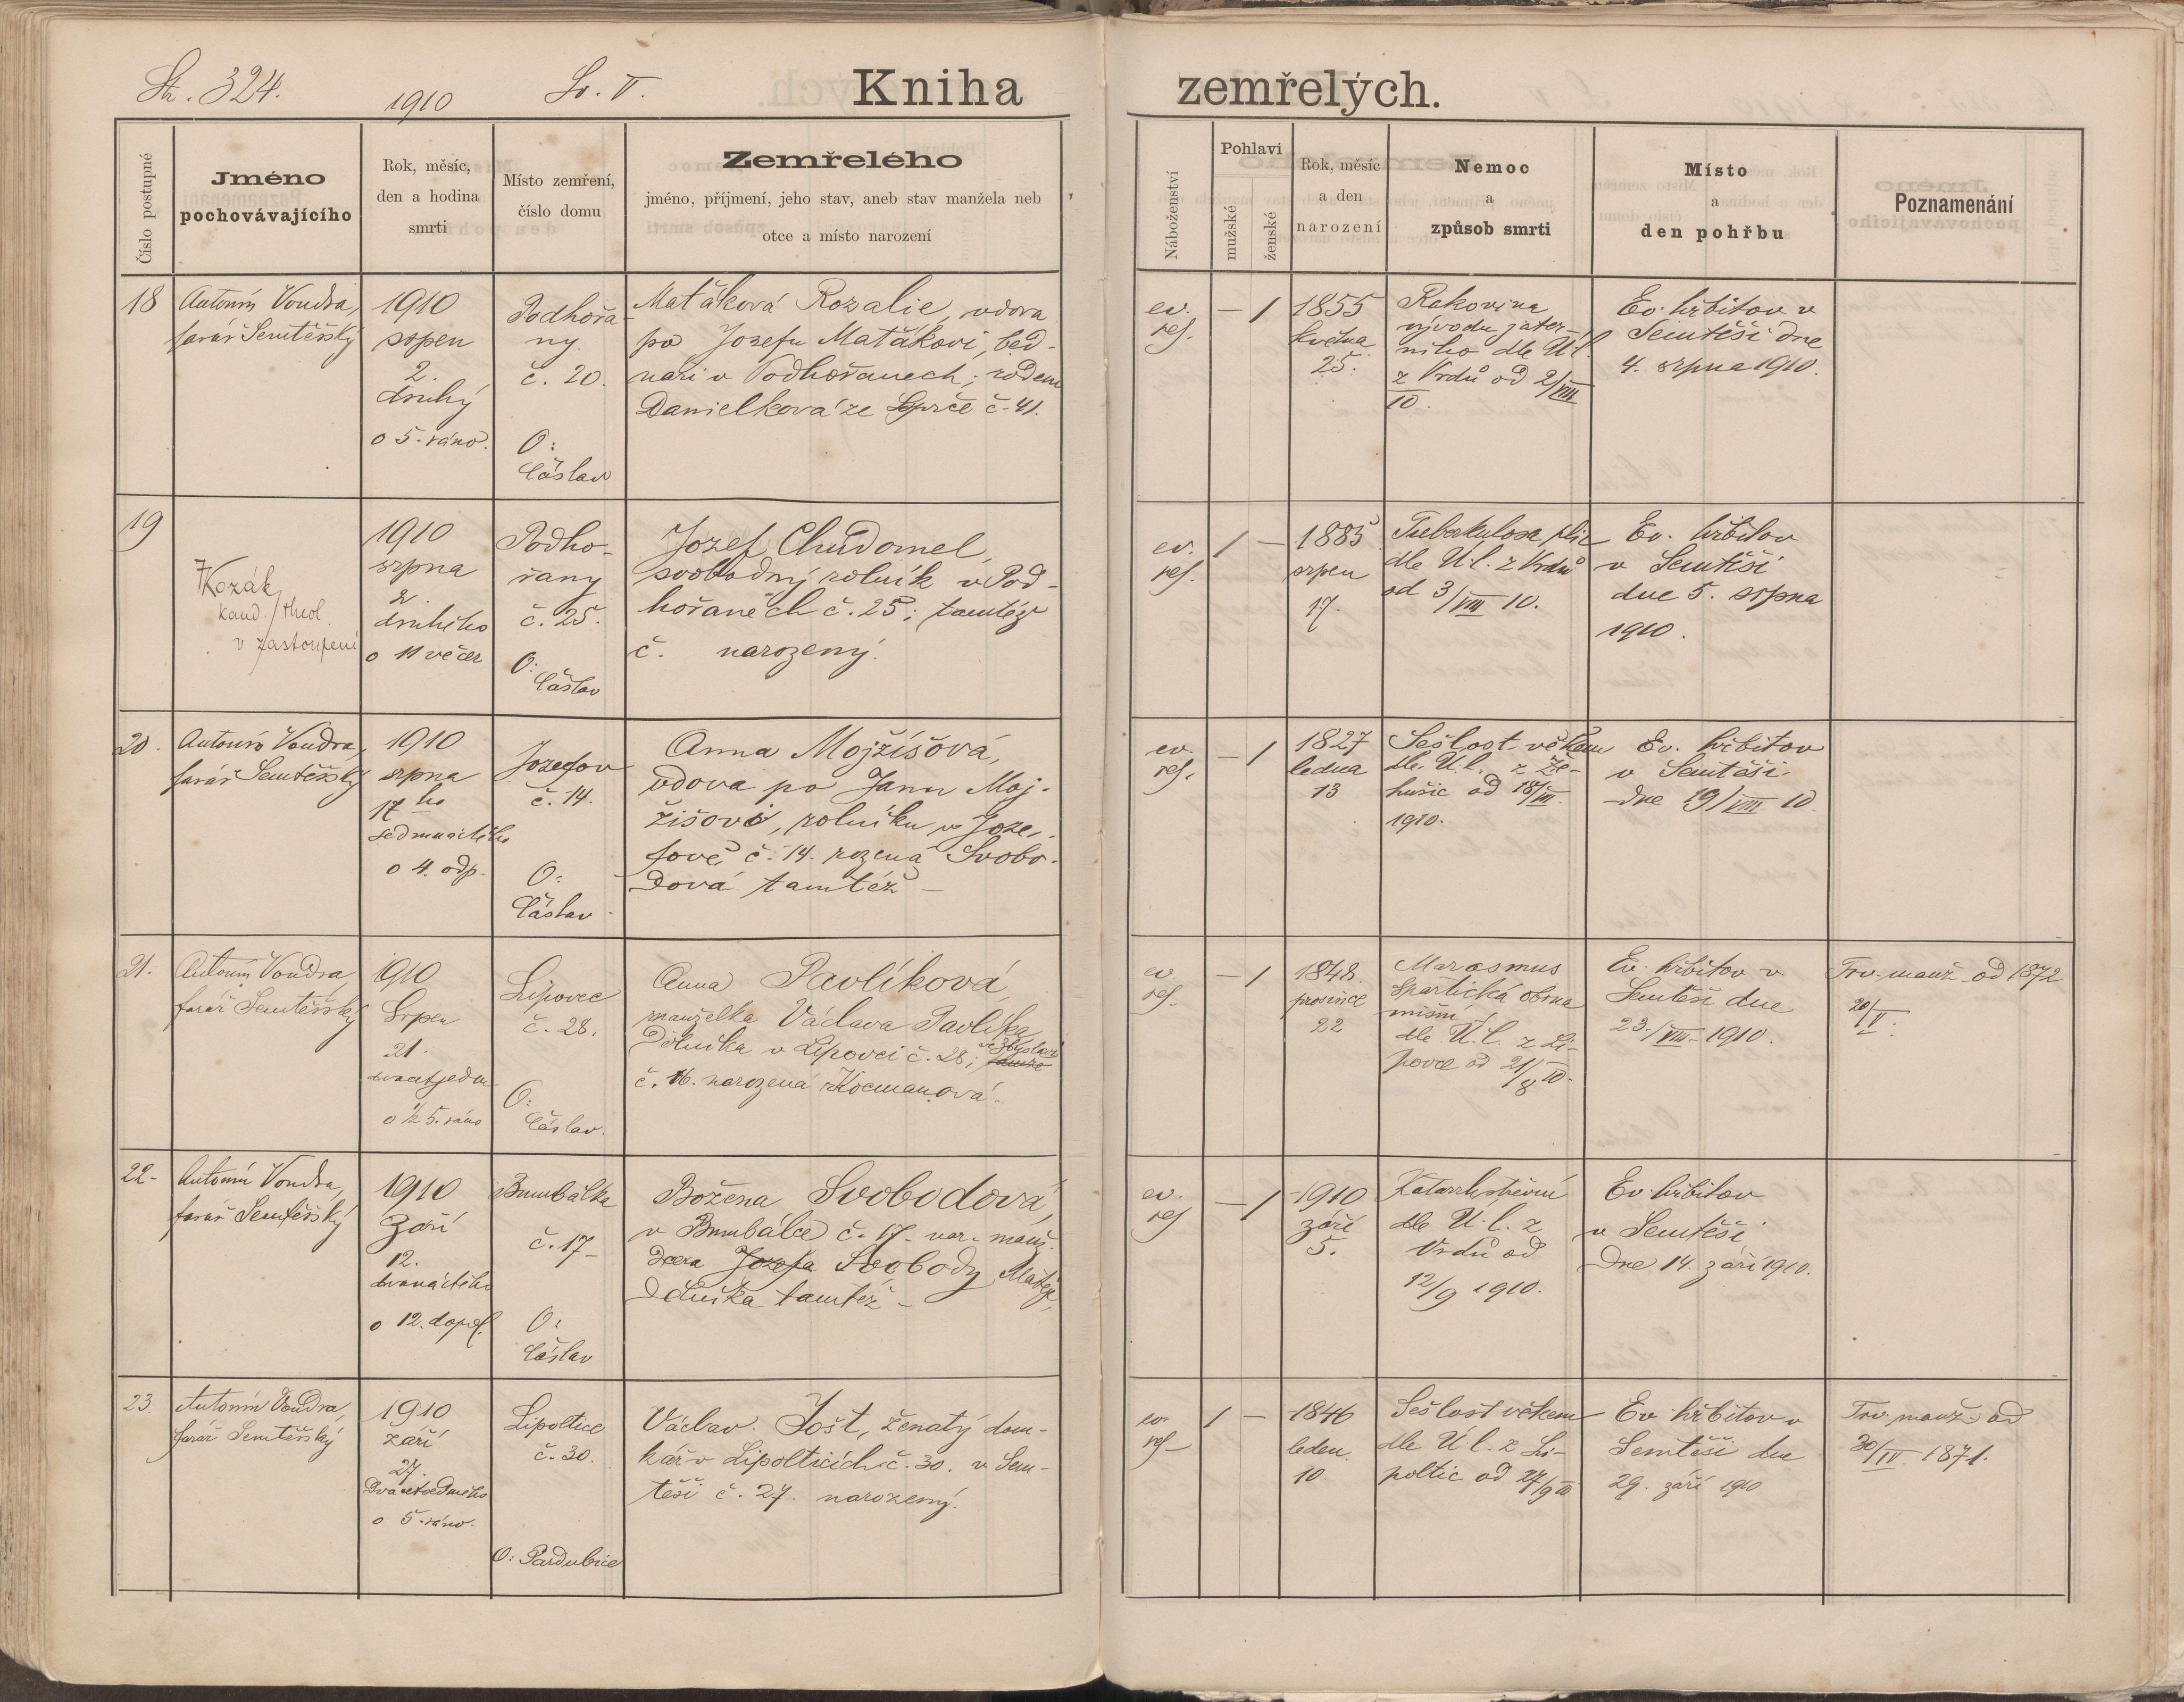 Str. 324.
1910
Sv. V.
Kniha zemřelých.
Číslo postupné
Jméno
pochovávajícího
Rok, měsíc,
den a hodina
smrti
Místo zemření,
číslo domu
Zemřelého
jméno, příjmení, jeho stav, aneb stav manžela neb
otce a místo narození
Náboženství
Pohlavi
mužské
ženské
Rok, měsíc
a den
narození
Nemoc
a
způsob smrti
Místo
a
den pohřbu
Poznamenání
18
Antonín Vondra,
farář Semtěšský
1910
srpen
2.
druhý
o 5. ráno.
Podhořa-
ny.
č. 20.
O:
Čáslav
Maťáková Rozalie, vdova
po Josefu Maťákovi, bed-
náři v Podhořanech; rodem
Danielková ze č. 41.
ev.
ref.
— 1
1855
května
25.
Rakovina
vývodu jater-
ního dle Ú.l.
z Vrdů od 2/VIII
10.
Ev. hřbitov v
Semtěši dne
4. srpna 1910.
19
Kozák
kand. theol.
v zastoupení
1910
srpna
2.
druhého
o 11 večer
Podho-
řany
č. 25.
O:
Čáslav
Jozef Chudomel,
svobodný rolník v Pod-
hořanech č. 25; tamtéž
č. narozený.
ev.
ref.
1 —
1885
srpen
17.
Tuberkulosa plic
dle Ú.l. z Vrdů
od 3/VIII 10.
Ev. hřbitov
v Semtěši
dne 5. srpna
1910.
20.
Antonín Vondra,
farář Semtěšský
1910
srpna
17ho
sedmnáctého
o 4. odp.
Jozefov
č. 14.
O:
Čáslav
Anna Mojžíšová,
vdova po Janu Moj-
žíšovi, rolníku v Joze-
fově č. 14. rozená Svobo-
dová tamtéž —
ev.
ref.
— 1
1827
ledna
13
Sešlost věkem
dle Ú.l. z Že-
hušic od 18/VIII
1910.
Ev. hřbitov
v Semtěši
dne 19/VIII 10
21.
Antonín Vondra,
farář Semtěšský
1910
Srpen
21.
dvacetjedn
o 1/2 5. ráno
Lipovec
č. 28.
O:
Čáslav.
Anna Pavlíková
manželka Václava Pavlíka
dělníka v Lipovci č. 28; ve Zbyslavi
č. 16. narozená Kocmanová.
ev.
ref.
— 1
1848.
prosince
22
Marasmus
spastická obrna
míšní
dle Ú.l. z Li-
povce od 21/8 10.
Ev. hřbitov v
Semtěši dne
23./VIII 1910.
Trv. manž. od 1872
20/V.
22.
Antonín Vondra,
farář Semtěšský
1910
Září
12.
dvanáctého
o 12. dopol.
Brumbálka
č. 17—
O:
Čáslav
Božena Svobodová,
v Brumbálce č. 17. nar. manž.
dcera Jozefa Svobody Matěje,
dělníka tamtéž —
ev.
ref
— 1
1910
září
5.
Katarrh střevní
dle Ú.l. z
Vrdů od
12/9 1910.
Ev. hřbitov
v Semtěši
dne 14. září 1910.
23.
Antonín Vondra,
farář Semtěšský
1910
září
27.
Dvacetsedmého
o 5. ráno.
Lipoltice
č. 30.
O: Pardubice
Václav Jošt, ženatý dom-
kář v Lipolticích č. 30. v Sem-
těši č. 27. narozený.
ev.
ref—
1 —
1846
leden
10
Sešlost věkem
dle Ú.l. z Li-
poltic od 27/9 10
Ev. hřbitov v
Semtěši dne
29. září 1910
Trv. manž. od
30/IV. 1871.